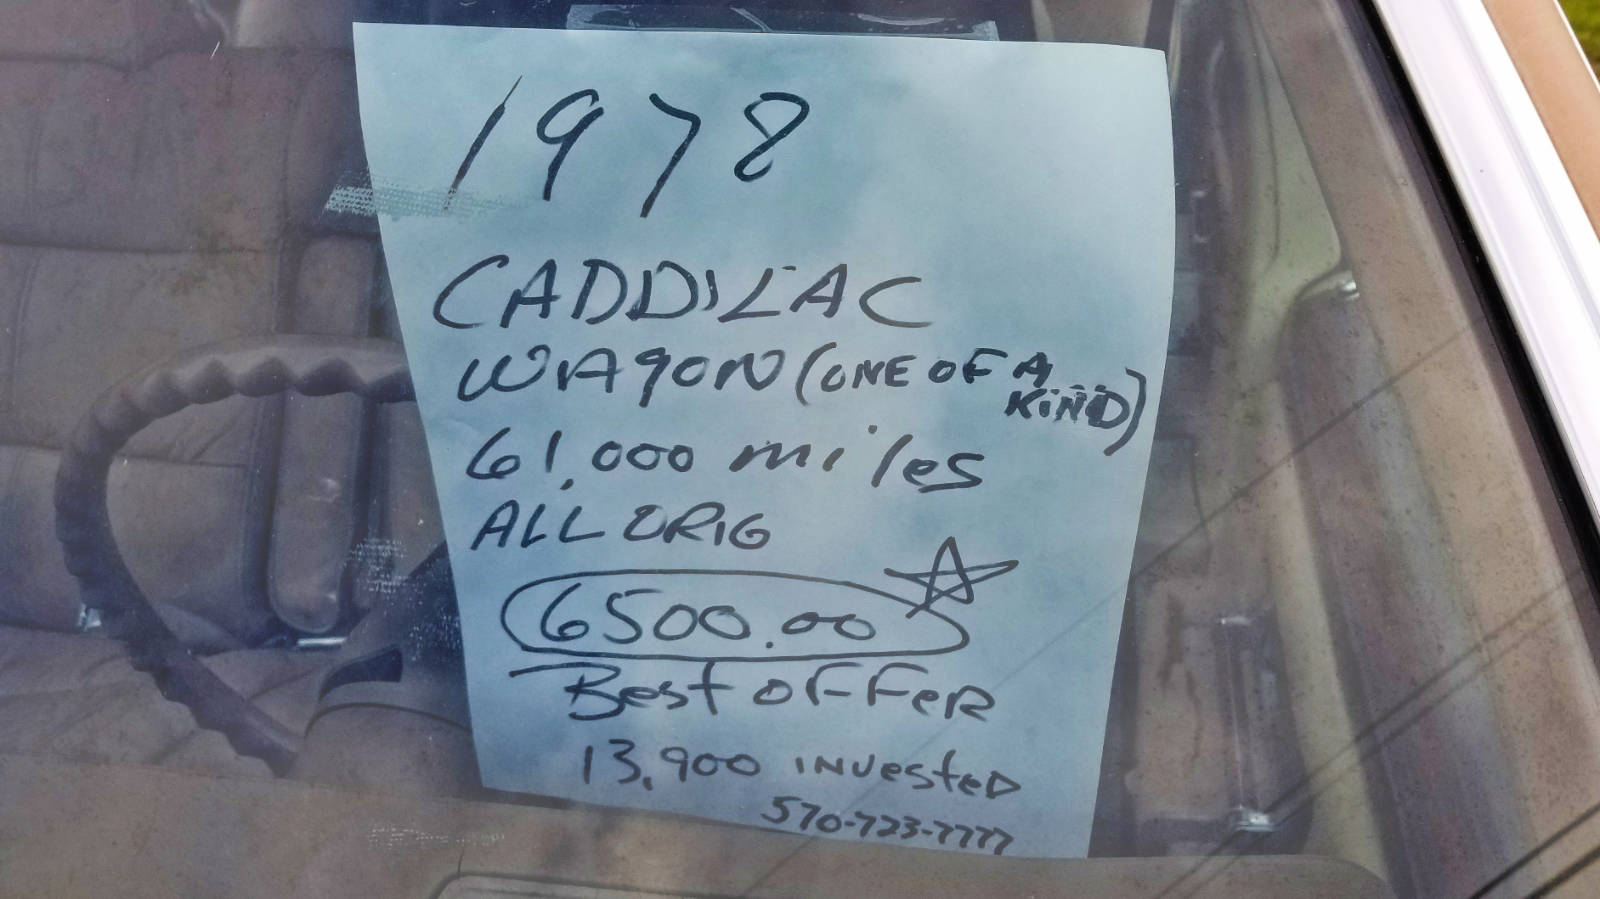 1978
CADDILAC
WAGON (ONE OF A
KIND)
61,000 miles
ALL ORIG
6500.00
Best OFFER
13,900 INVESTED
570-723-7777